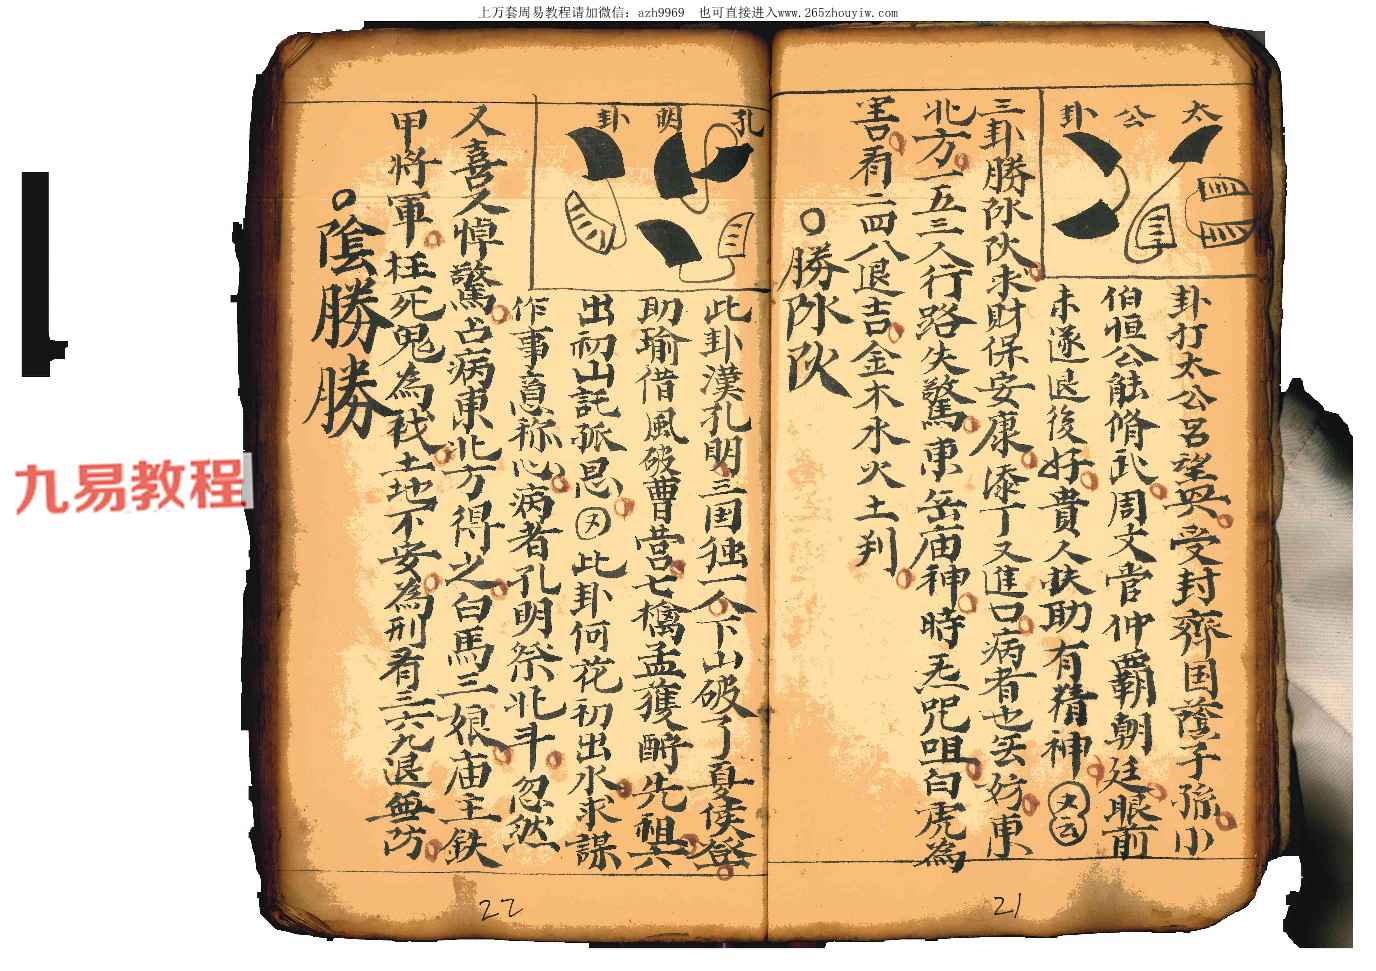 上万套周易教程请加微信：azh9969 也可直接进入www.265zhouyiw.com
太公卦
卦打太公呂望興受封齊国蔭子孫小
伯恒公能脩武周文管仲覇朝廷眼前
未遂退後好貴人扶助有精神
大云
三卦勝 求財保安康添丁又進口病者也 妨東
北方一五三人行路失驚東岳庙神時 咒咀白虎為
善看二四八退吉金木水火土判
勝
孔明卦
此卦漢孔明三国独一人下山破了夏侯
助瑜借風破曹营七擒孟獲 先祖六
出初山託孤恩
又
此卦何花初出水求謀
作事 称心病者孔明祭北斗忽然
又喜又悼驚占病東北方得之白馬三娘庙主鉄
甲將軍枉死鬼為 土地不安為刑看三六九退無防
陰勝勝
九易教程
22
21